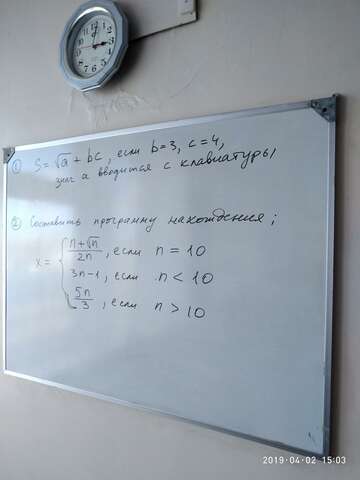 ① S = √a + bc, если b=3, c=4,
знач a вводится с клавиатуры
② Составить программу нахождения;
x = { (n+√n)/2n, если n = 10
3n-1, если n < 10
5n/3, если n > 10
2019-04-02 15:03